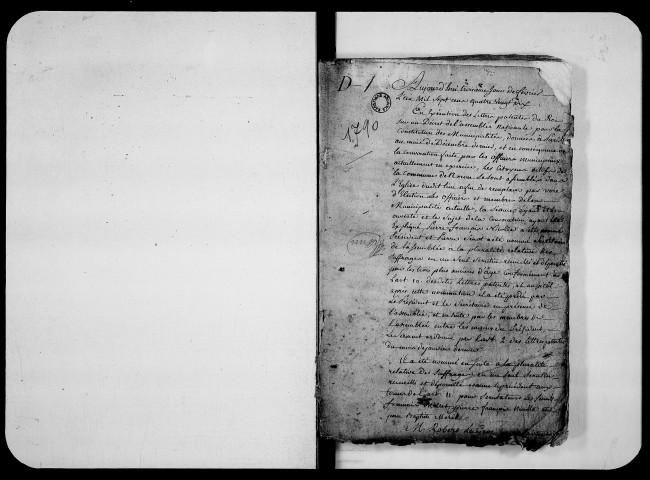 D-1
1790
Aujourd'hui troisieme jour de fevrier
L'an Mil Sept cent quatre vingt Dix
En Execution des Lettres patentes du Roi
sur un Decret de l'assemblée Nationale, pour la
Constitution des Municipalités, données à Paris
au mois de Décembre dernier, et en consequence de
la convocation faite par les officiers municipaux
actuellement en exercice, les Citoyens actifs de
la Commune de se sont assemblés dans
L'Eglise dudit lieu afin de remplacer par voie
d'Election les officiers et membres de leur
Municipalité actuelle, la Séance ayant été
ouverte et le Sujet de la convocation ayant été
Expliqué, Pierre François a été nommé
Président et Pierre a été nommé Secrétaire
de l'assemblée à la pluralité relative des
Suffrages en un Seul Scrutin recueilli et dépouillé
par les trois plus anciens d'age conformément à
l'art 10 desdites Lettres patentes, et aussitôt
après cette nomination il a été prêté par
le Président et le Secrétaire en présence de
l'assemblée, et ensuite par les membres de
L'assemblée entre les mains du Président
Le serment ordonné par l'art 2 des lettres patentes
du mois de janvier dernier
Il a été nommé ensuite à la pluralité
relative des Suffrages en un Seul Scrutin
recueilli et dépouillé comme le précédent aux
termes de l'art 11 pour Scrutateurs les Sieurs
François Pierre François et
jean Baptiste
M Robert